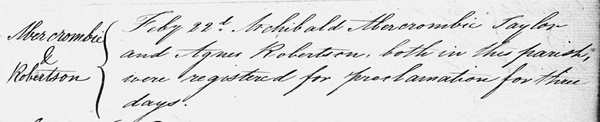 Abercrombie
&
Robertson
Feby 22d. Archibald Abercrombie Taylor
and Agnes Robertson, both in this parish,
were registered for proclamation for three
days.